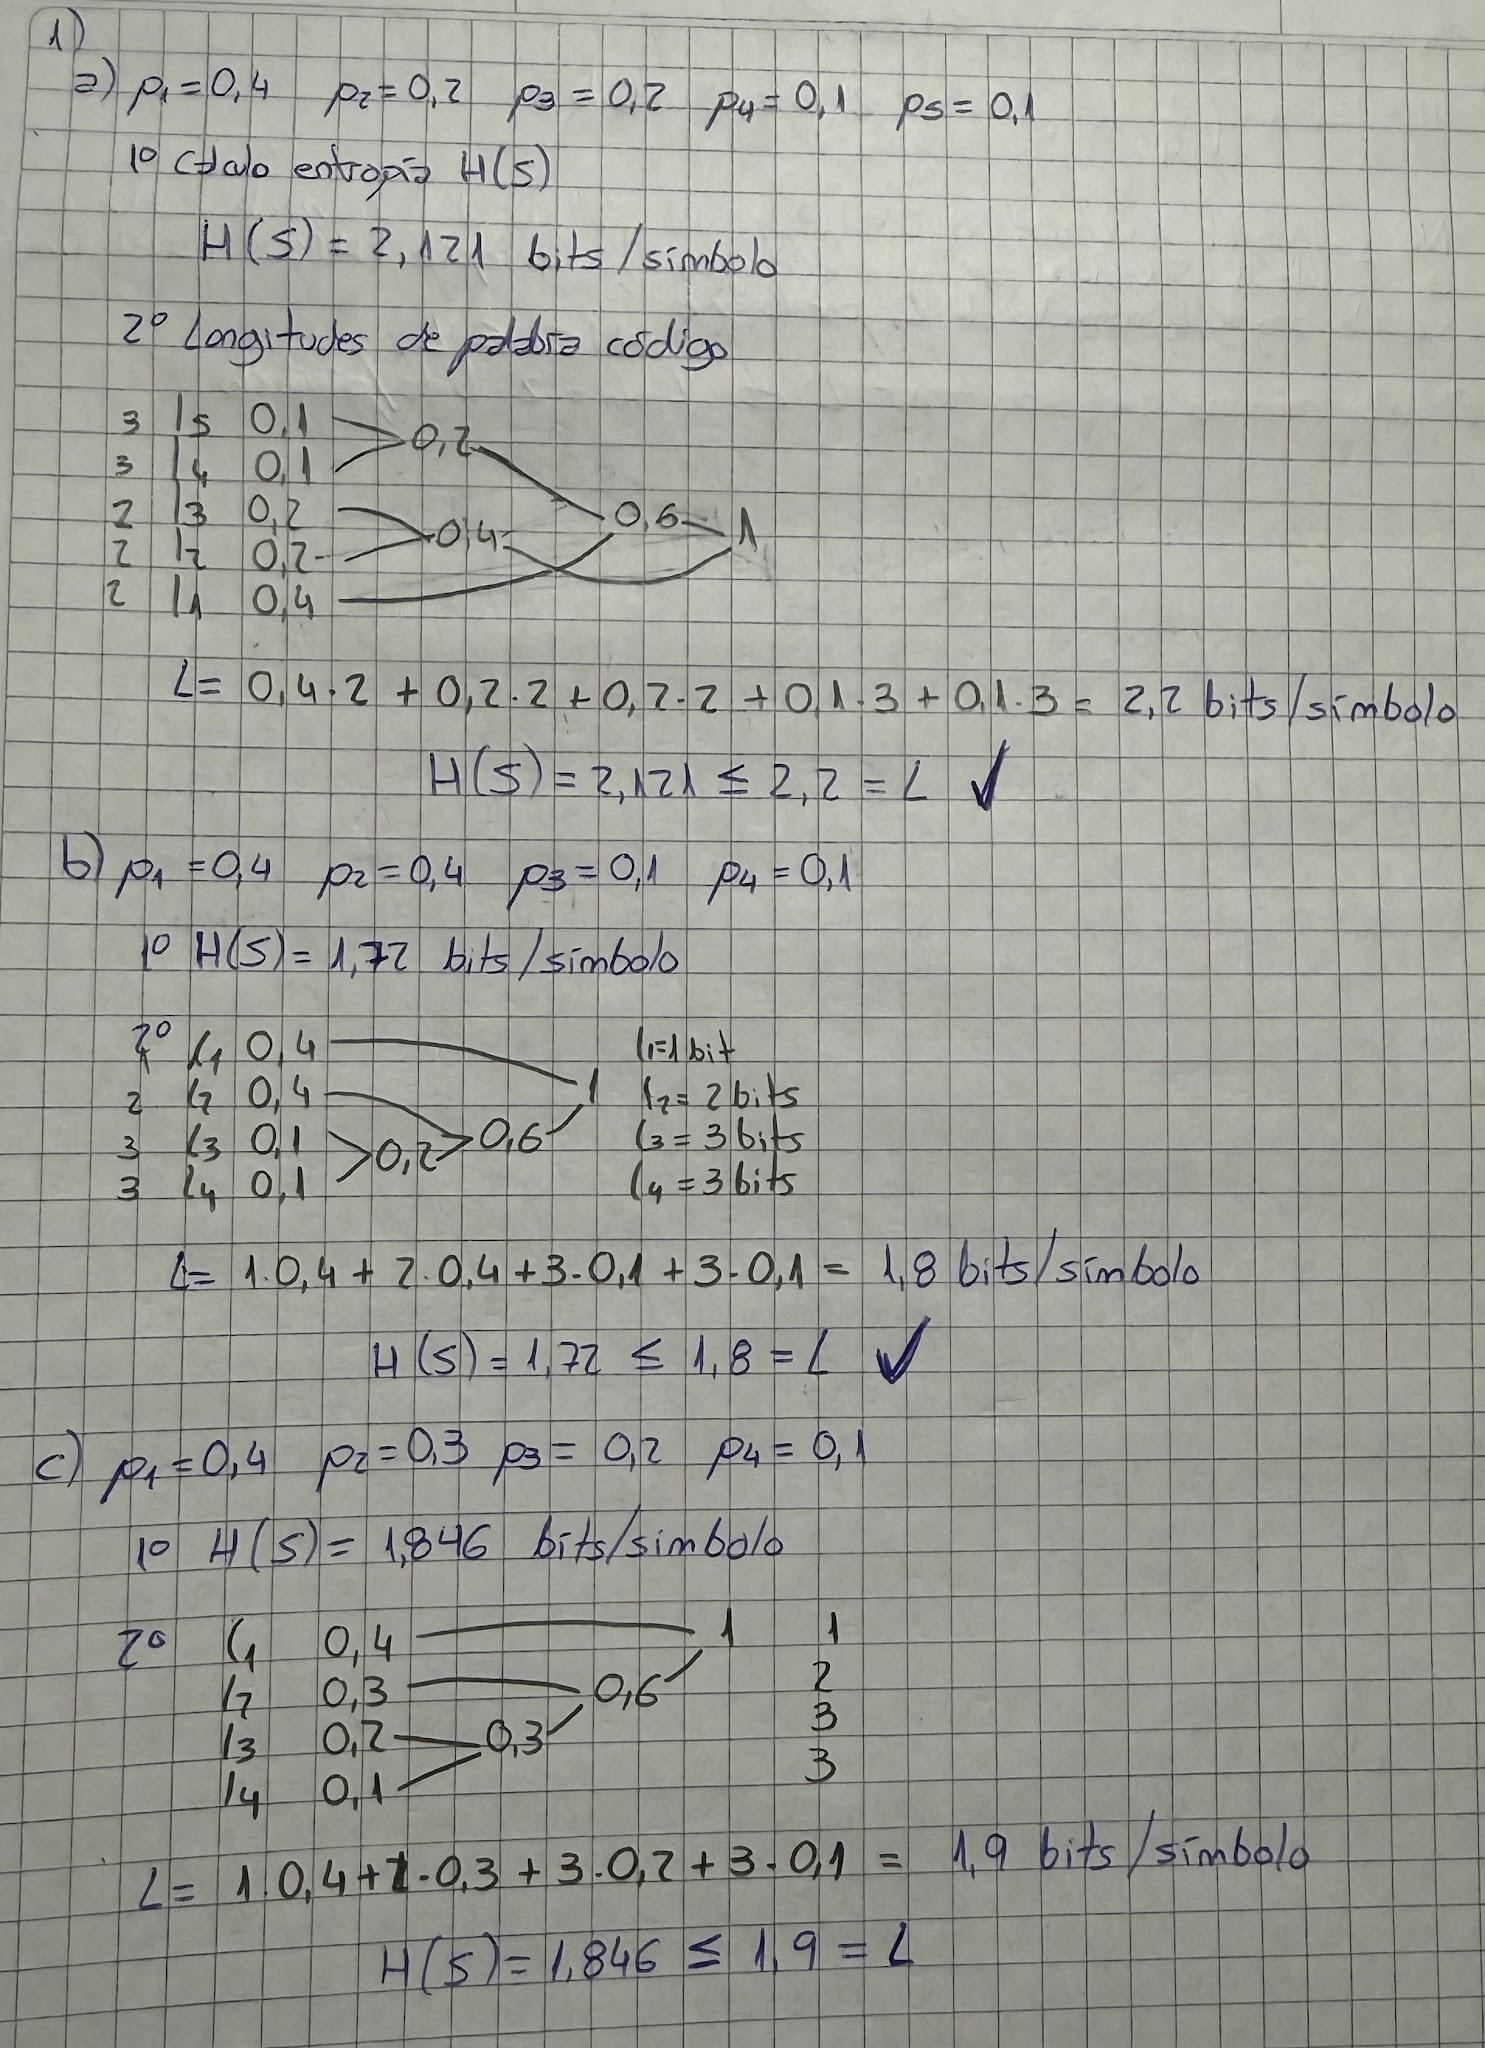 1)
a) p1 = 0,4 p2 = 0,2 p3 = 0,2 p4 = 0,1 p5 = 0,1
1º Cálculo entropía H(S)
H(S) = 2,121 bits/símbolo
2º Longitudes de palabra código
3 l5 0,1
0,2
3 l4 0,1
2 l3 0,2
0,4 0,6 1
2 l2 0,2
2 l1 0,4
L = 0,4·2 + 0,2·2 + 0,2·2 + 0,1·3 + 0,1·3 = 2,2 bits/símbolo
H(S) = 2,121 ≤ 2,2 = L ✓
b) p1 = 0,4 p2 = 0,4 p3 = 0,1 p4 = 0,1
1º H(S) = 1,72 bits/símbolo
2º
1 l1 0,4 l1 = 1 bit
2 l2 0,4 1 l2 = 2 bits
3 l3 0,1 0,2 0,6 l3 = 3 bits
3 l4 0,1 l4 = 3 bits
L = 1·0,4 + 2·0,4 + 3·0,1 + 3·0,1 = 1,8 bits/símbolo
H(S) = 1,72 ≤ 1,8 = L ✓
c) p1 = 0,4 p2 = 0,3 p3 = 0,2 p4 = 0,1
1º H(S) = 1,846 bits/símbolo
2º l1 0,4 1 1
l2 0,3 0,6 2
l3 0,2 0,3 3
l4 0,1 3
L = 1·0,4 + 2·0,3 + 3·0,2 + 3·0,1 = 1,9 bits/símbolo
H(S) = 1,846 ≤ 1,9 = L